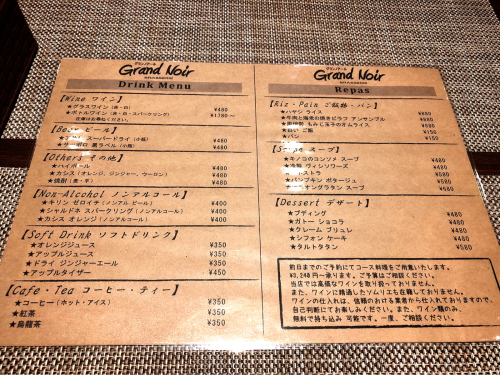 Grand Noir
Drink Menu
【Wine ワイン】
★グラスワイン（赤・白） ¥480
★ボトルワイン（赤・白・スパークリング） ¥1780～
【Beer ビール】
スーパードライ（小瓶） ¥480
黒ラベル（小瓶） ¥480
【Others その他】
★ハイボール ¥480
★カシス（オレンジ、ジンジャー、ウーロン） ¥480
★焼酎（麦・芋） ¥480
【Non-Alchol ノンアルコール】
★キリン ゼロイチ（ノンアル ビール） ¥400
★シャルドネ スパークリング（ノンアルコール） ¥400
★カシス オレンジ（ノンアルコール） ¥400
【Soft Drink ソフトドリンク】
★オレンジジュース ¥350
★アップルジュース ¥350
★ドライ ジンジャーエール ¥350
★アップルタイザー ¥450
【Cafe・Tea コーヒー・ティー】
★コーヒー（ホット・アイス） ¥350
★紅茶 ¥350
★烏龍茶 ¥350
Grand Noir
Repas
【Riz・Pain ご飯物・パン】
★ハヤシ ライス ¥480
★牛肉と海老の焼きピラフ アンサンブル ¥680
もみじ玉子のオムライス ¥680
ご飯 ¥150
★パン ¥150
スープ】
★キノコのコンソメ スープ ¥480
ヴィシソワーズ ¥480
¥580
★パンプキン ポタージュ ¥580
グラタン スープ ¥680
【Dessert デザート】
★プディング ¥480
★ガトー ショコラ ¥480
★クレーム ブリュレ ¥480
★シフォン ケーキ ¥480
★タルトタタン ¥580
前日までのご予約にてコース料理をご用意いたします。
¥3,240円～承ります。ご予算はご相談ください。
当店では高価なワインを取り扱っておりません。
また、ワインに精通したソムリエも在籍しておりません。
ワインの仕入れは、信頼のおける業者から仕入れておりますので、
自己判断にてお楽しみください。また、ワイン類のみ、
無料で持ち込み 可能です。一度、ご相談ください。